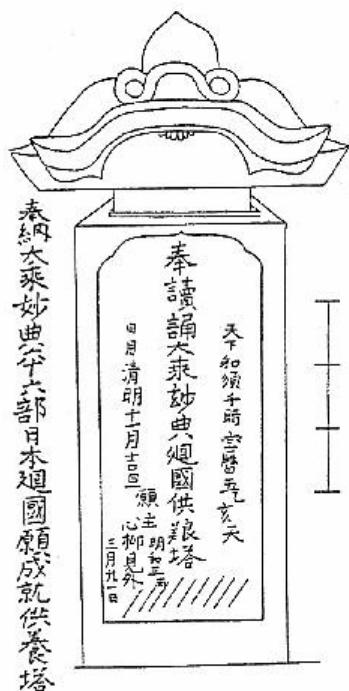 天下和須干時宝暦五乙亥天
奉讀誦大乘妙典廻國供粮塔
日月清明十一月吉日
願主
心柳見外
奉納大乘妙典六十六部日本廻國願成就供養塔